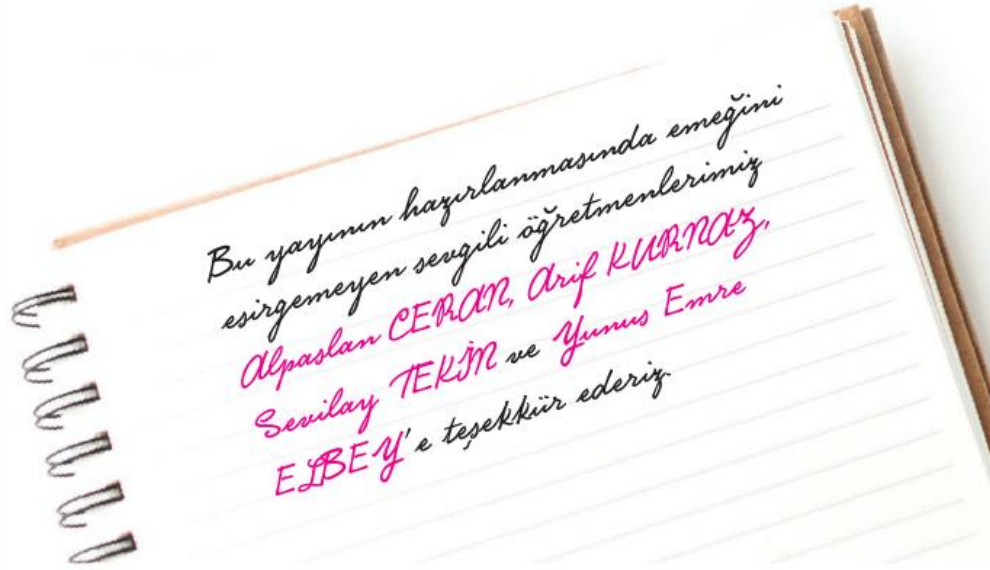 Bu yayının hazırlanmasında emeğini
esirgemeyen sevgili öğretmenlerimiz
Alpaslan CERAN, Arif KURNAZ,
Sevilay TEKİN ve Yunus Emre
ELBEY'e teşekkür ederiz.